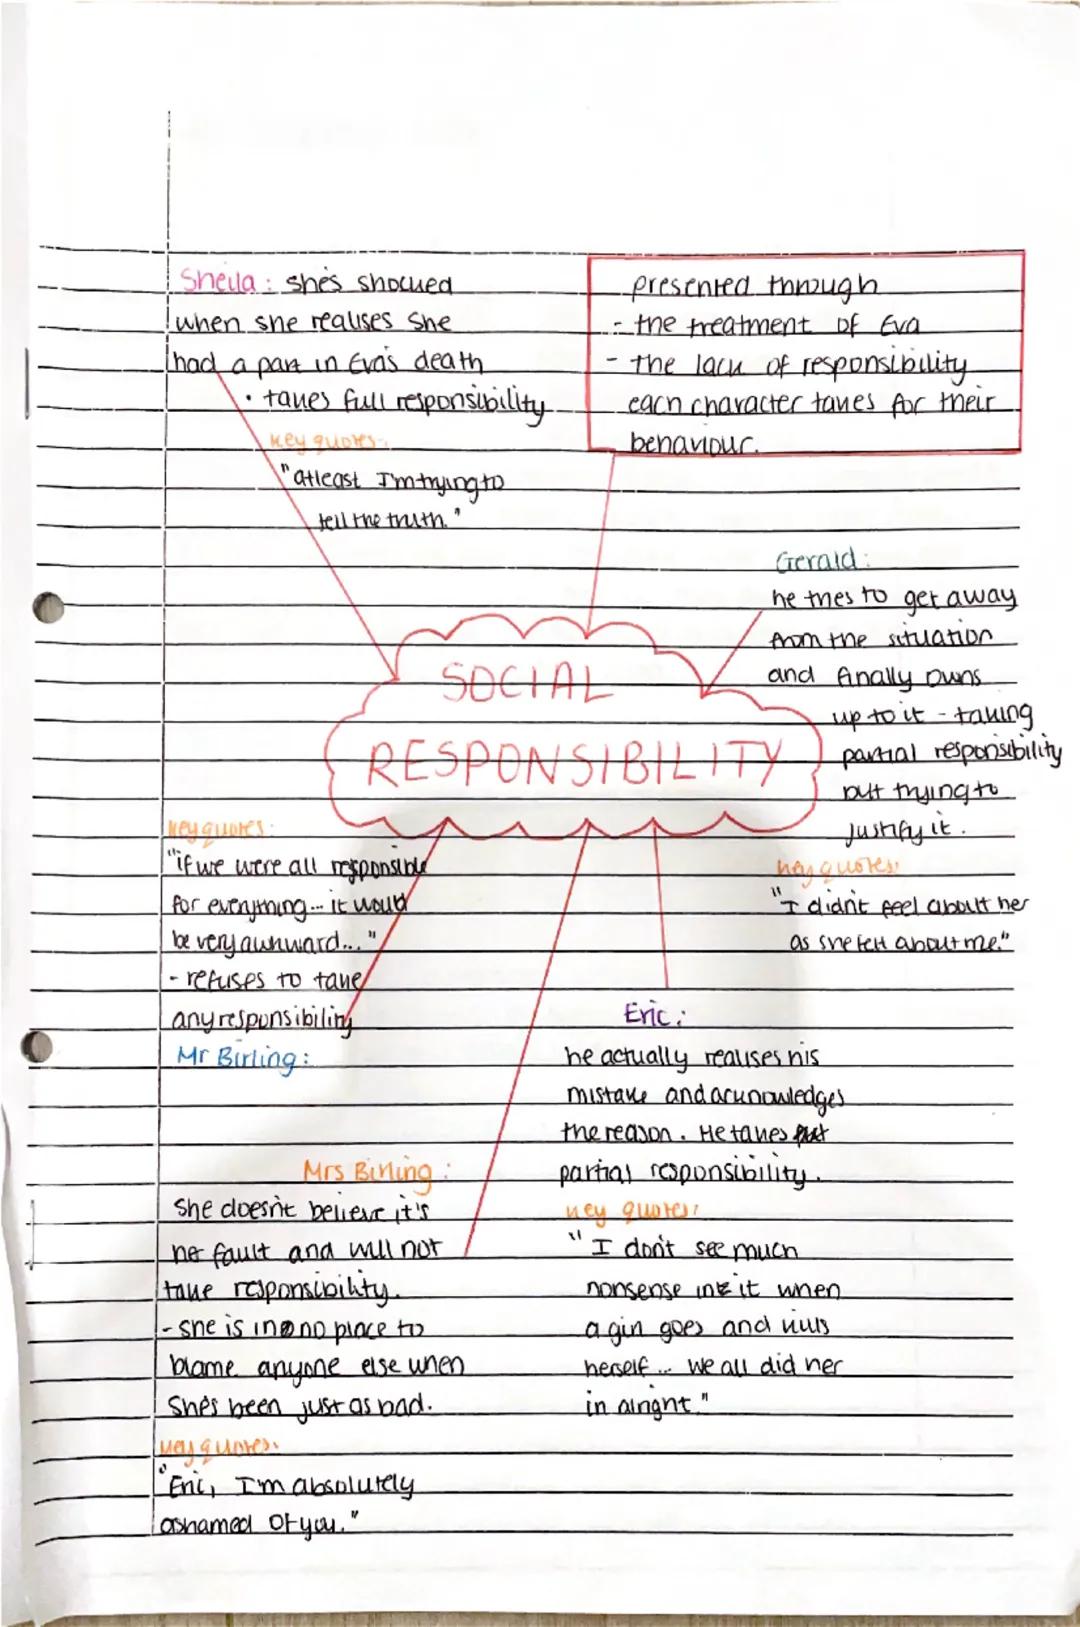 Sheila: she's shocked
when she realises she
had a part in Eva's death
• takes full responsibility
key quotes:
"atleast I'm trying to
tell the truth."
presented through
- the treatment of Eva
- the lack of responsibility
each character takes for their
behaviour.
Gerald:
he tries to get away
from the situation
and finally owns
up to it - taking
partial responsibility
but trying to
justify it.
key quotes:
"I didn't feel about her
as she felt about me."
SOCIAL
RESPONSIBILITY
key quotes:
"if we were all responsible
for everything... it would
be very awkward..."
- refuses to take
any responsibility
Mr Birling:
Eric:
he actually realises his
mistake and acknowledges
the reason. He takes
partial responsibility.
key quotes:
"I don't see much
nonsense in it when
a girl goes and kills
herself... we all did her
in alright."
Mrs Birling:
She doesn't believe it's
her fault and will not
take responsibility.
- she is in no place to
blame anyone else when
she's been just as bad.
key quotes:
"Eric, I'm absolutely
ashamed of you."